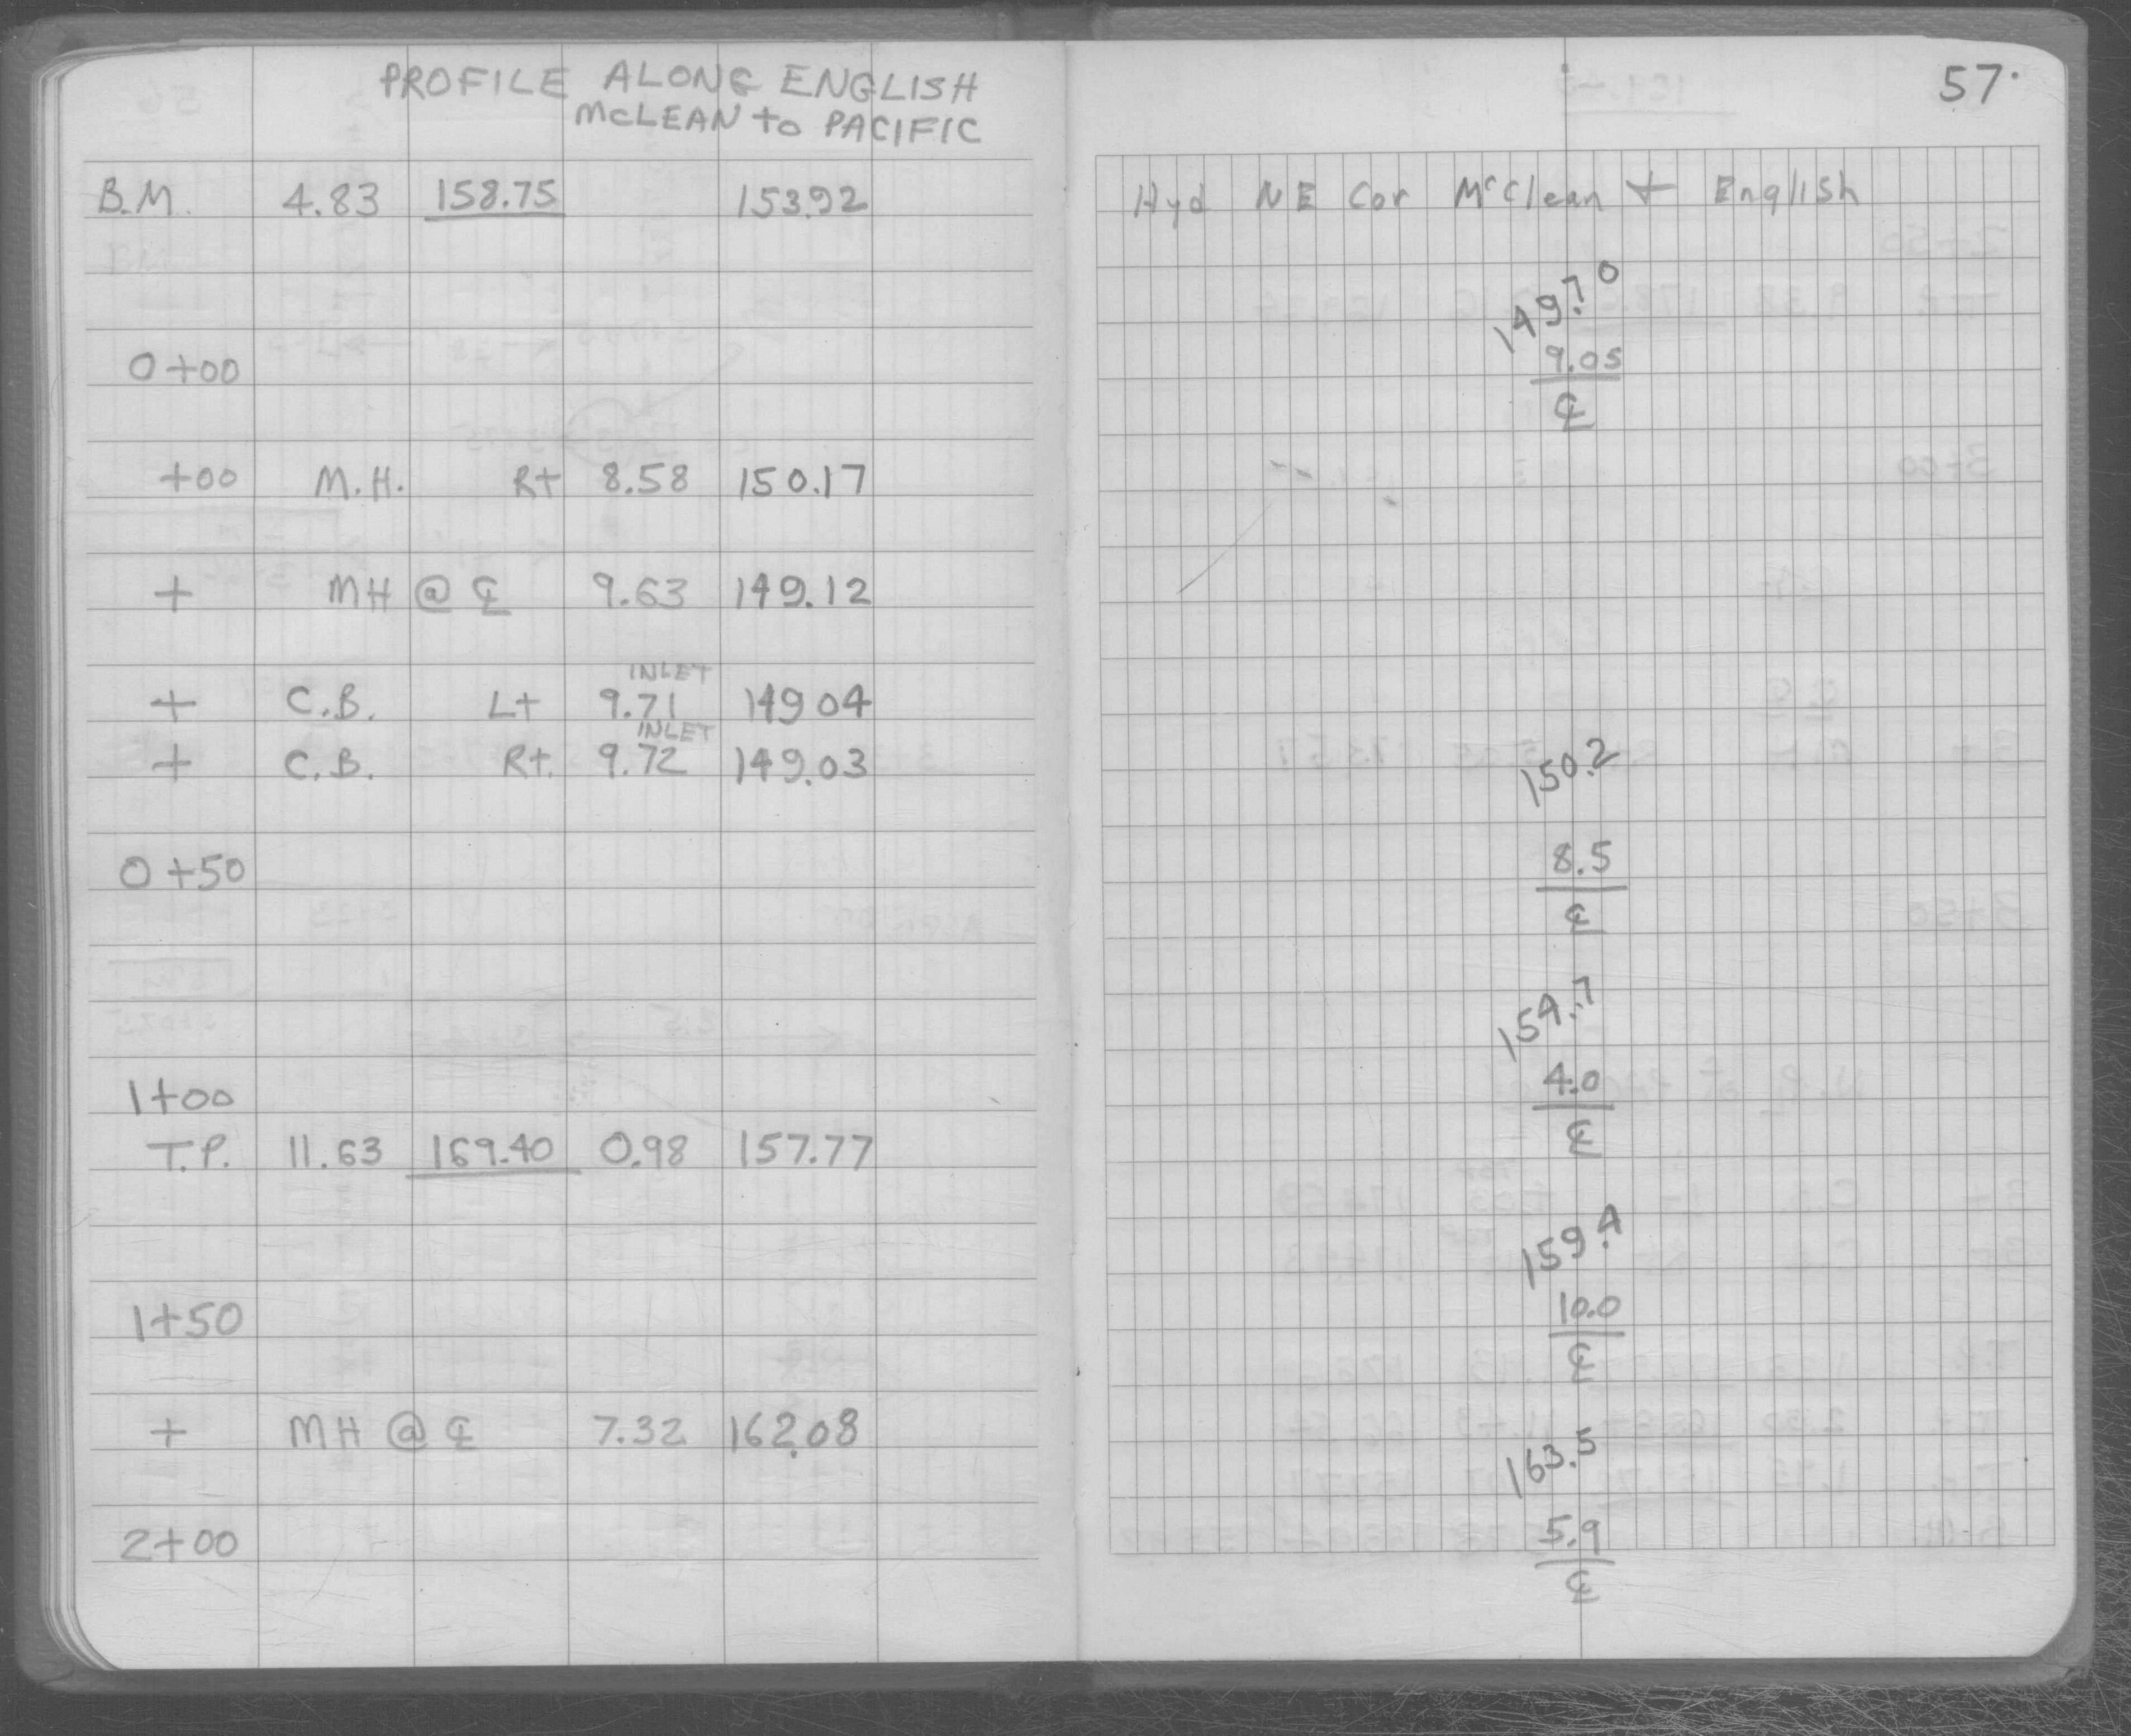 PROFILE ALONG ENGLISH
McLEAN to PACIFIC
B.M. 4.83 158.75 153.92
0+00
+00 M.H. Rt 8.58 150.17
+ MH @ ℄ 9.63 149.12
INLET
+ C.B. Lt 9.71 149.04
INLET
+ C.B. Rt. 9.72 149.03
0+50
1+00
T.P. 11.63 169.40 0.98 157.77
1+50
+ MH @ ℄ 7.32 162.08
2+00
57.
Hyd NE Cor McClean + English
149.70
9.05
℄
150.2
8.5
℄
154.7
4.0
℄
159.4
10.0
℄
163.5
5.9
℄